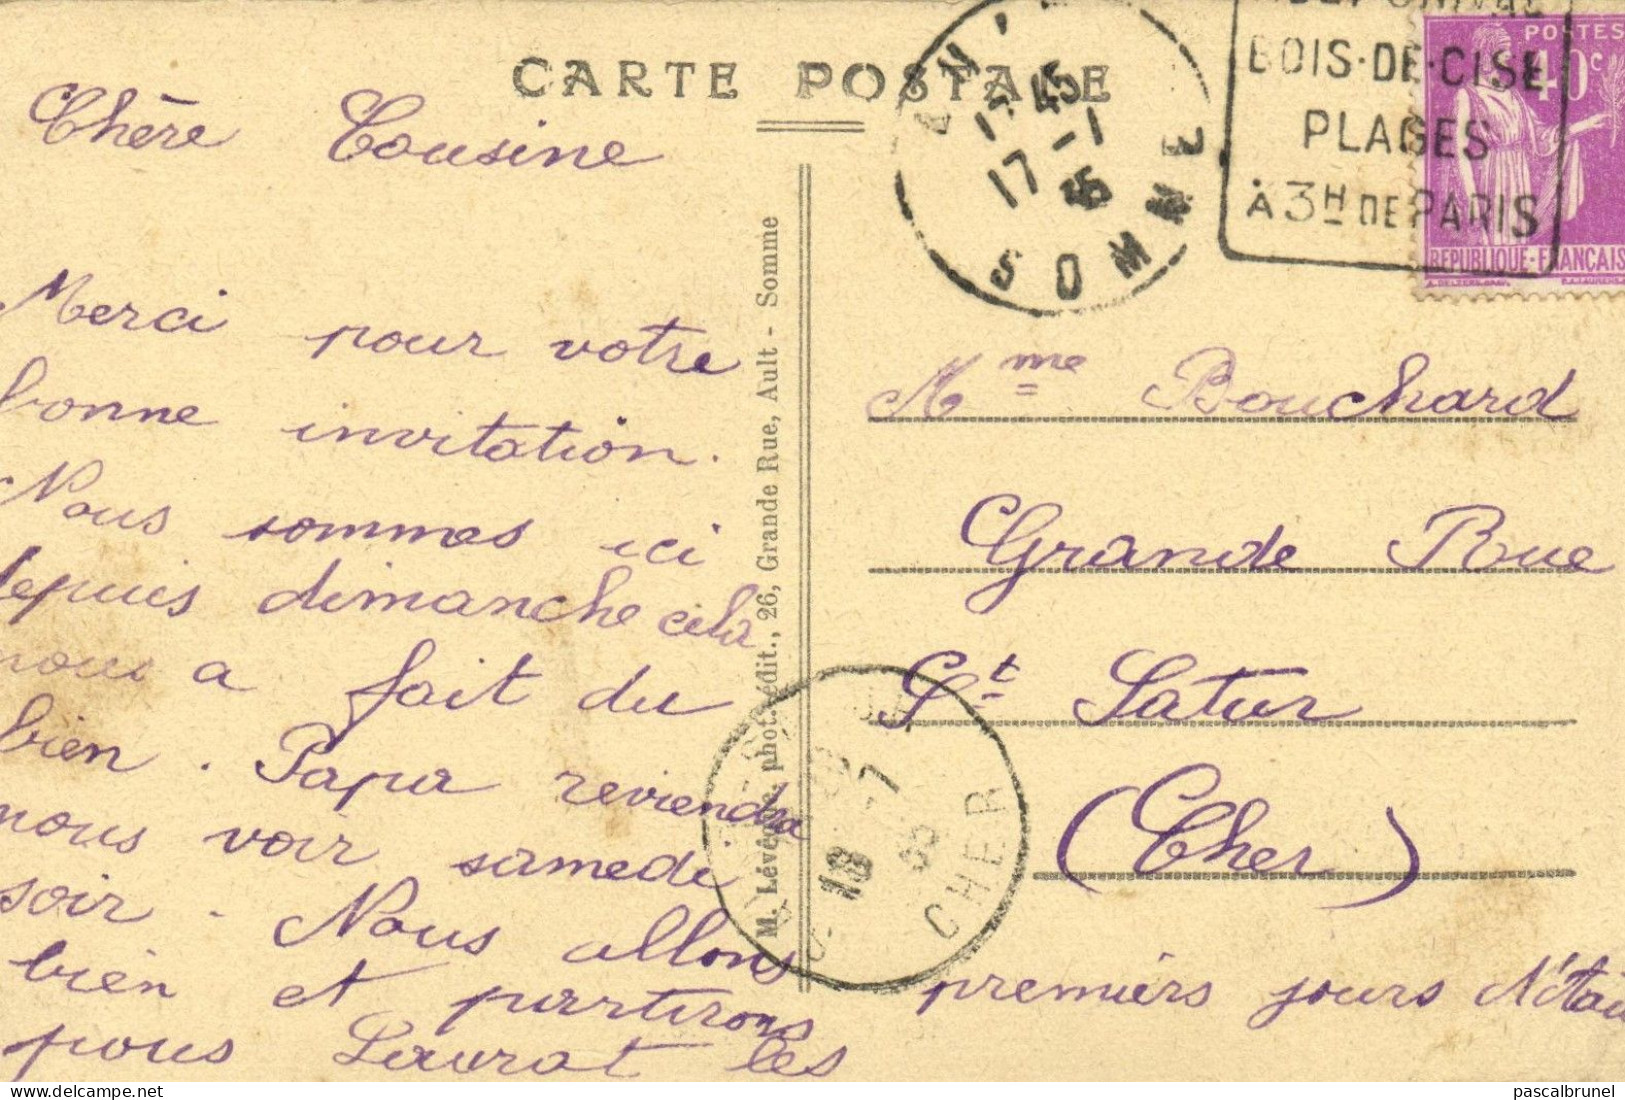 CARTE POSTALE
Chère Cousine
Merci pour votre
bonne invitation.
Nous sommes ici
depuis dimanche cela
nous a fait du
bien. Papa reviendra
nous voir samedi
soir. Nous allons
bien et partirons
pour Laurat les
premiers jours N'étai
M. Lévêque, phot.-édit., 26, Grande Rue, Ault - Somme
17 45
17 -1
35
SOMME
BOIS·DE·CISE
PLAGES
À 3H DE PARIS
POSTES
40c
REPUBLIQUE·FRANÇAIS
Mme Bouchard
Grande Rue
St Satur
(Cher)
18 -7
35
CHER
pascalbrunel